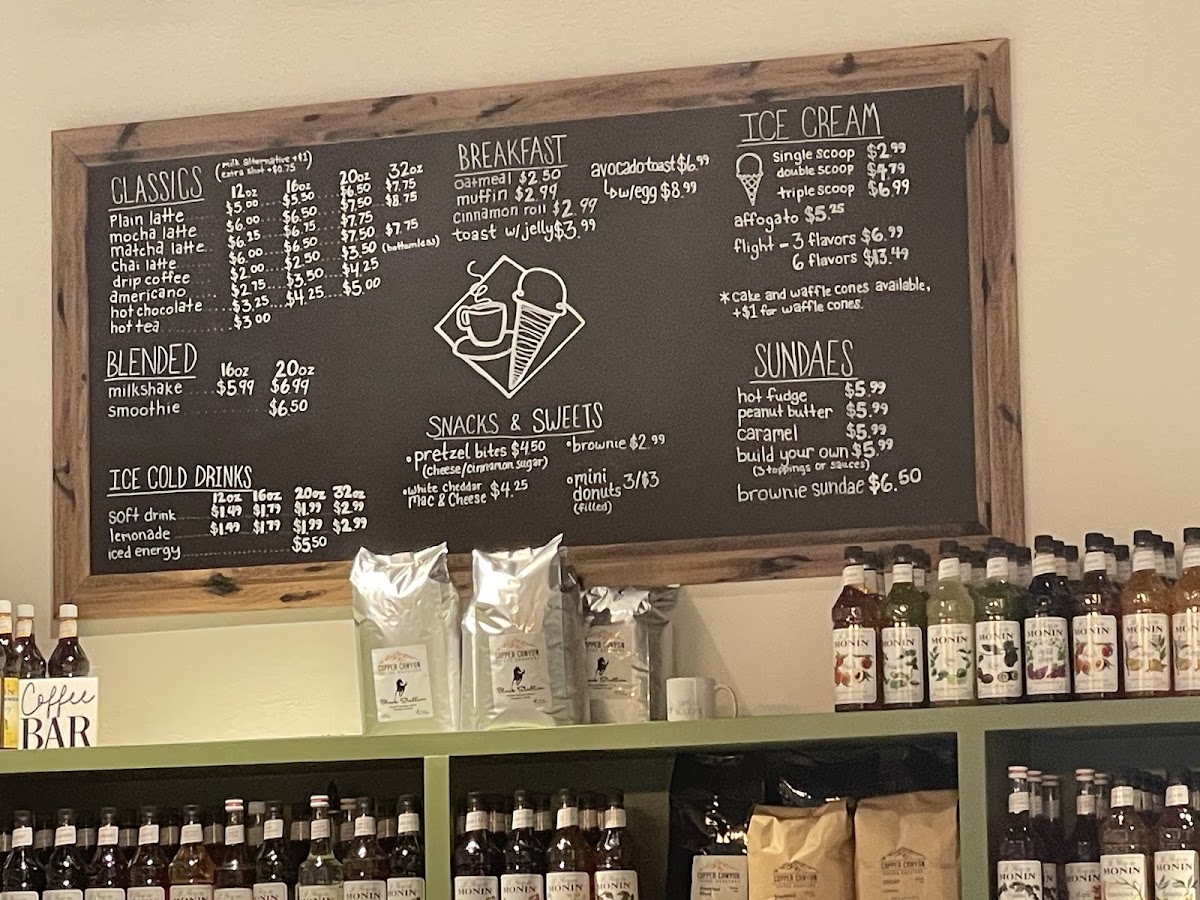 CLASSICS (milk alternative +$1)
extra shot +$0.75)
12oz 16oz 20oz 32oz
Plain latte $5.00 $5.50 $6.50 $7.75
mocha latte $6.00 $6.50 $7.50 $8.75
matcha latte $6.25 $6.75 $7.75
chai latte $6.00 $6.50 $7.50 $7.75
drip coffee $2.00 $2.50 $3.50 (bottomless)
americano $2.75 $3.50 $4.25
hot chocolate $3.25 $4.25 $5.00
hot tea $3.00
BLENDED
16oz 20oz
milkshake $5.99 $6.99
smoothie $6.50
ICE COLD DRINKS
12oz 16oz 20oz 32oz
soft drink $1.49 $1.79 $1.99 $2.99
lemonade $1.49 $1.79 $1.99 $2.99
iced energy $5.50
BREAKFAST
oatmeal $2.50
muffin $2.99
cinnamon roll $2.99
toast w/jelly $3.99
avocado toast $6.99
w/egg $8.99
SNACKS & SWEETS
•pretzel bites $4.50
(cheese/cinnamon sugar)
•white cheddar
mac & cheese $4.25
•brownie $2.99
•mini
donuts 3/$3
(filled)
ICE CREAM
single scoop $2.99
double scoop $4.79
triple scoop $6.99
affogato $5.25
flight - 3 flavors $6.99
6 flavors $13.49
*cake and waffle cones available,
+$1 for waffle cones.
SUNDAES
hot fudge $5.99
peanut butter $5.99
caramel $5.99
build your own $5.99
(3 toppings or sauces)
brownie sundae $6.50
Coffee
BAR
COPPER CANYON
Black Stallion
COPPER CANYON
Black Stallion
COPPER CANYON
MONIN
MONIN
MONIN
MONIN
MONIN
MONIN
MONIN
MONIN
MONIN
MONIN
MONIN
MONIN
COPPER CANYON
COPPER CANYON
COPPER CANYON
MONIN
MONIN
MONIN